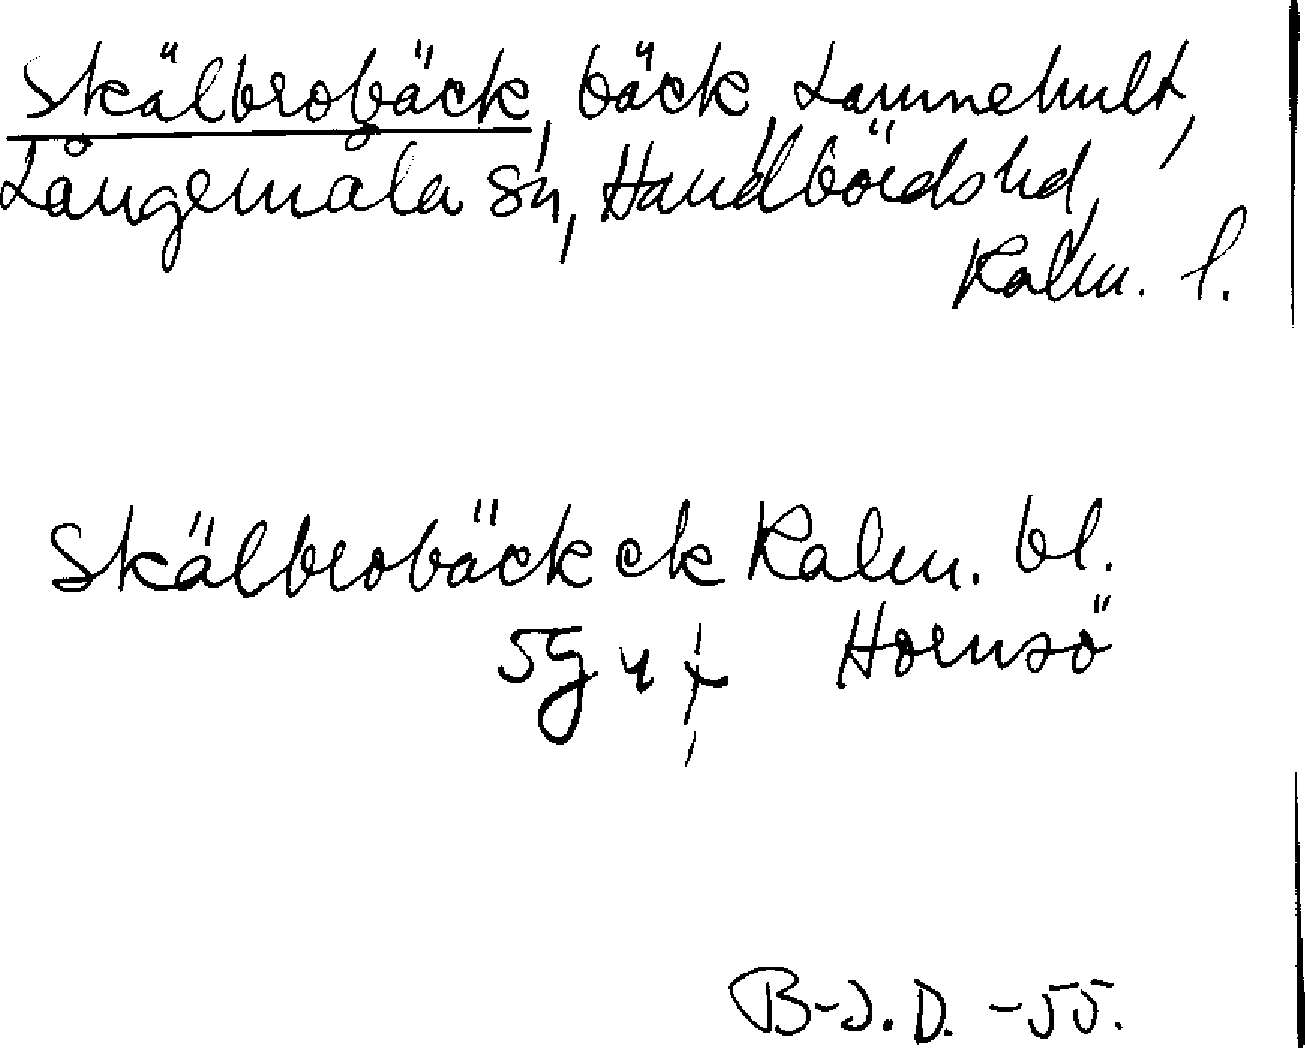 Skälbrobäck, bäck, Lammehult,
Långemåla sn, Handbördshd,
Kalm. l.
Skälbrobäck ek Kalm. bl.
5g Hornsö
B-J.D. -55.